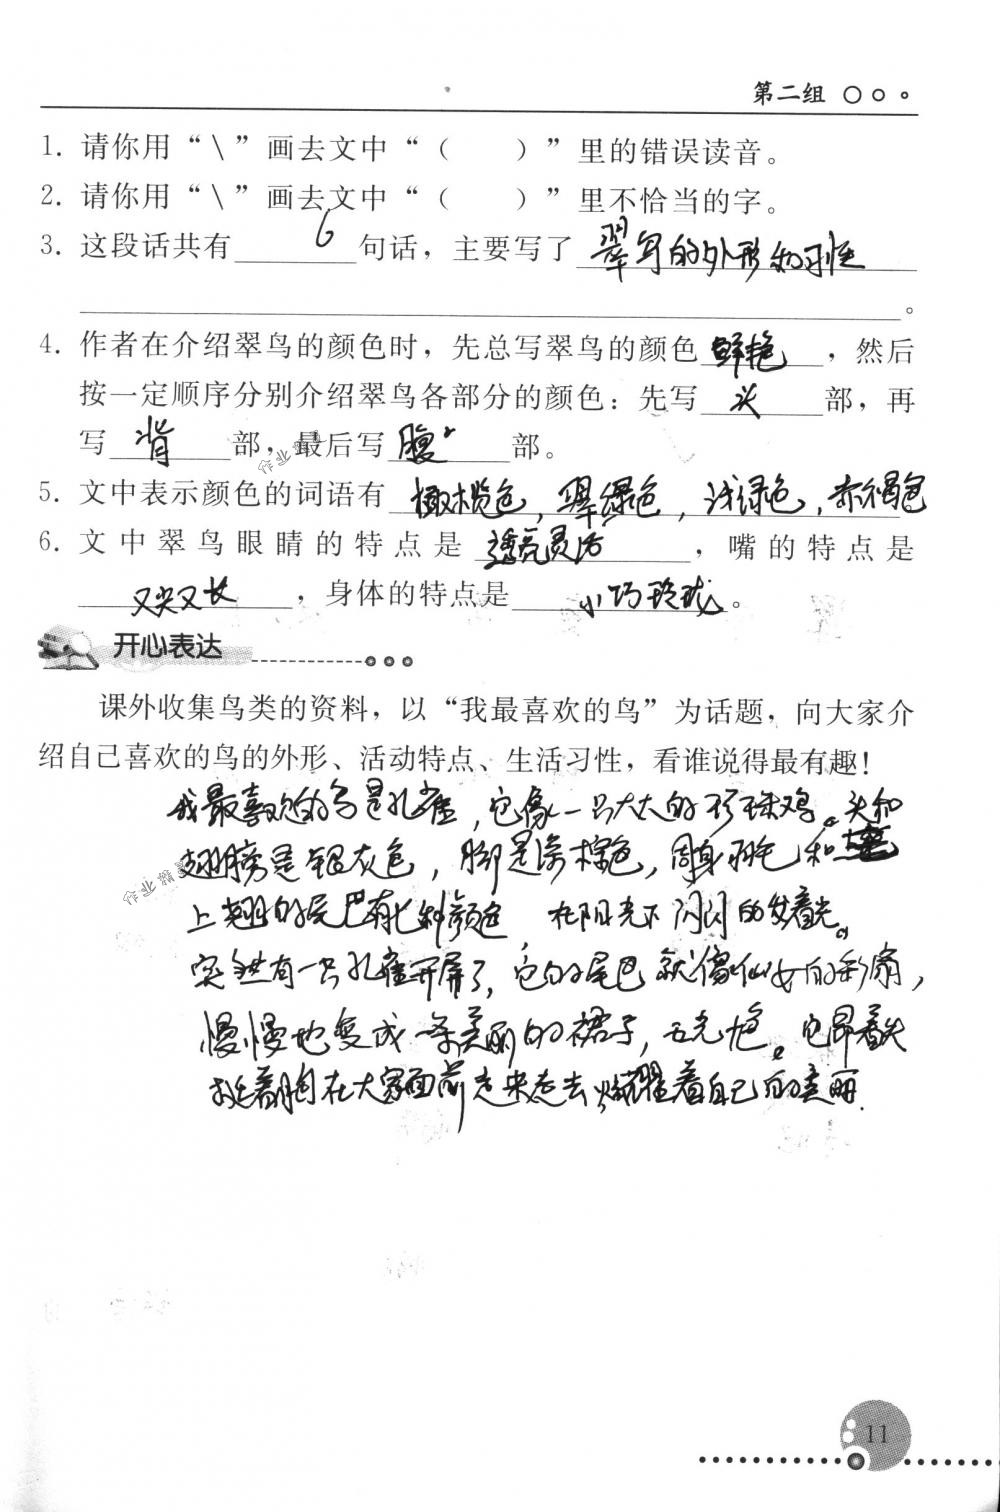 第二组
1. 请你用“\”画去文中“（  ）”里的错误读音。
2. 请你用“\”画去文中“（  ）”里不恰当的字。
3. 这段话共有 6 句话，主要写了 翠鸟的外形和习性
。
4. 作者在介绍翠鸟的颜色时，先总写翠鸟的颜色 鲜艳 ，然后
按一定顺序分别介绍翠鸟各部分的颜色：先写 头 部，再
写 背 部，最后写 腹 部。
5. 文中表示颜色的词语有 橄榄色，翠绿色，浅绿色，赤褐色
6. 文中翠鸟眼睛的特点是 透亮灵活 ，嘴的特点是
又尖又长 ，身体的特点是 小巧玲珑 。
开心表达
课外收集鸟类的资料，以“我最喜欢的鸟”为话题，向大家介
绍自己喜欢的鸟的外形、活动特点、生活习性，看谁说得最有趣！
我最喜欢的鸟是孔雀，它像一只大大的珍珠鸡。头和
翅膀是银灰色，脚是深棕色，周身羽毛和
上翘的尾巴有七种颜色，在阳光下闪闪的发着光。
突然有一只孔雀开屏了，它的尾巴就像仙女的彩扇，
慢慢地变成一条美丽的裙子，五光十色。它昂着头
挺着胸在大家面前走来走去炫耀着自己的美丽.
作业精灵
作业精灵
11